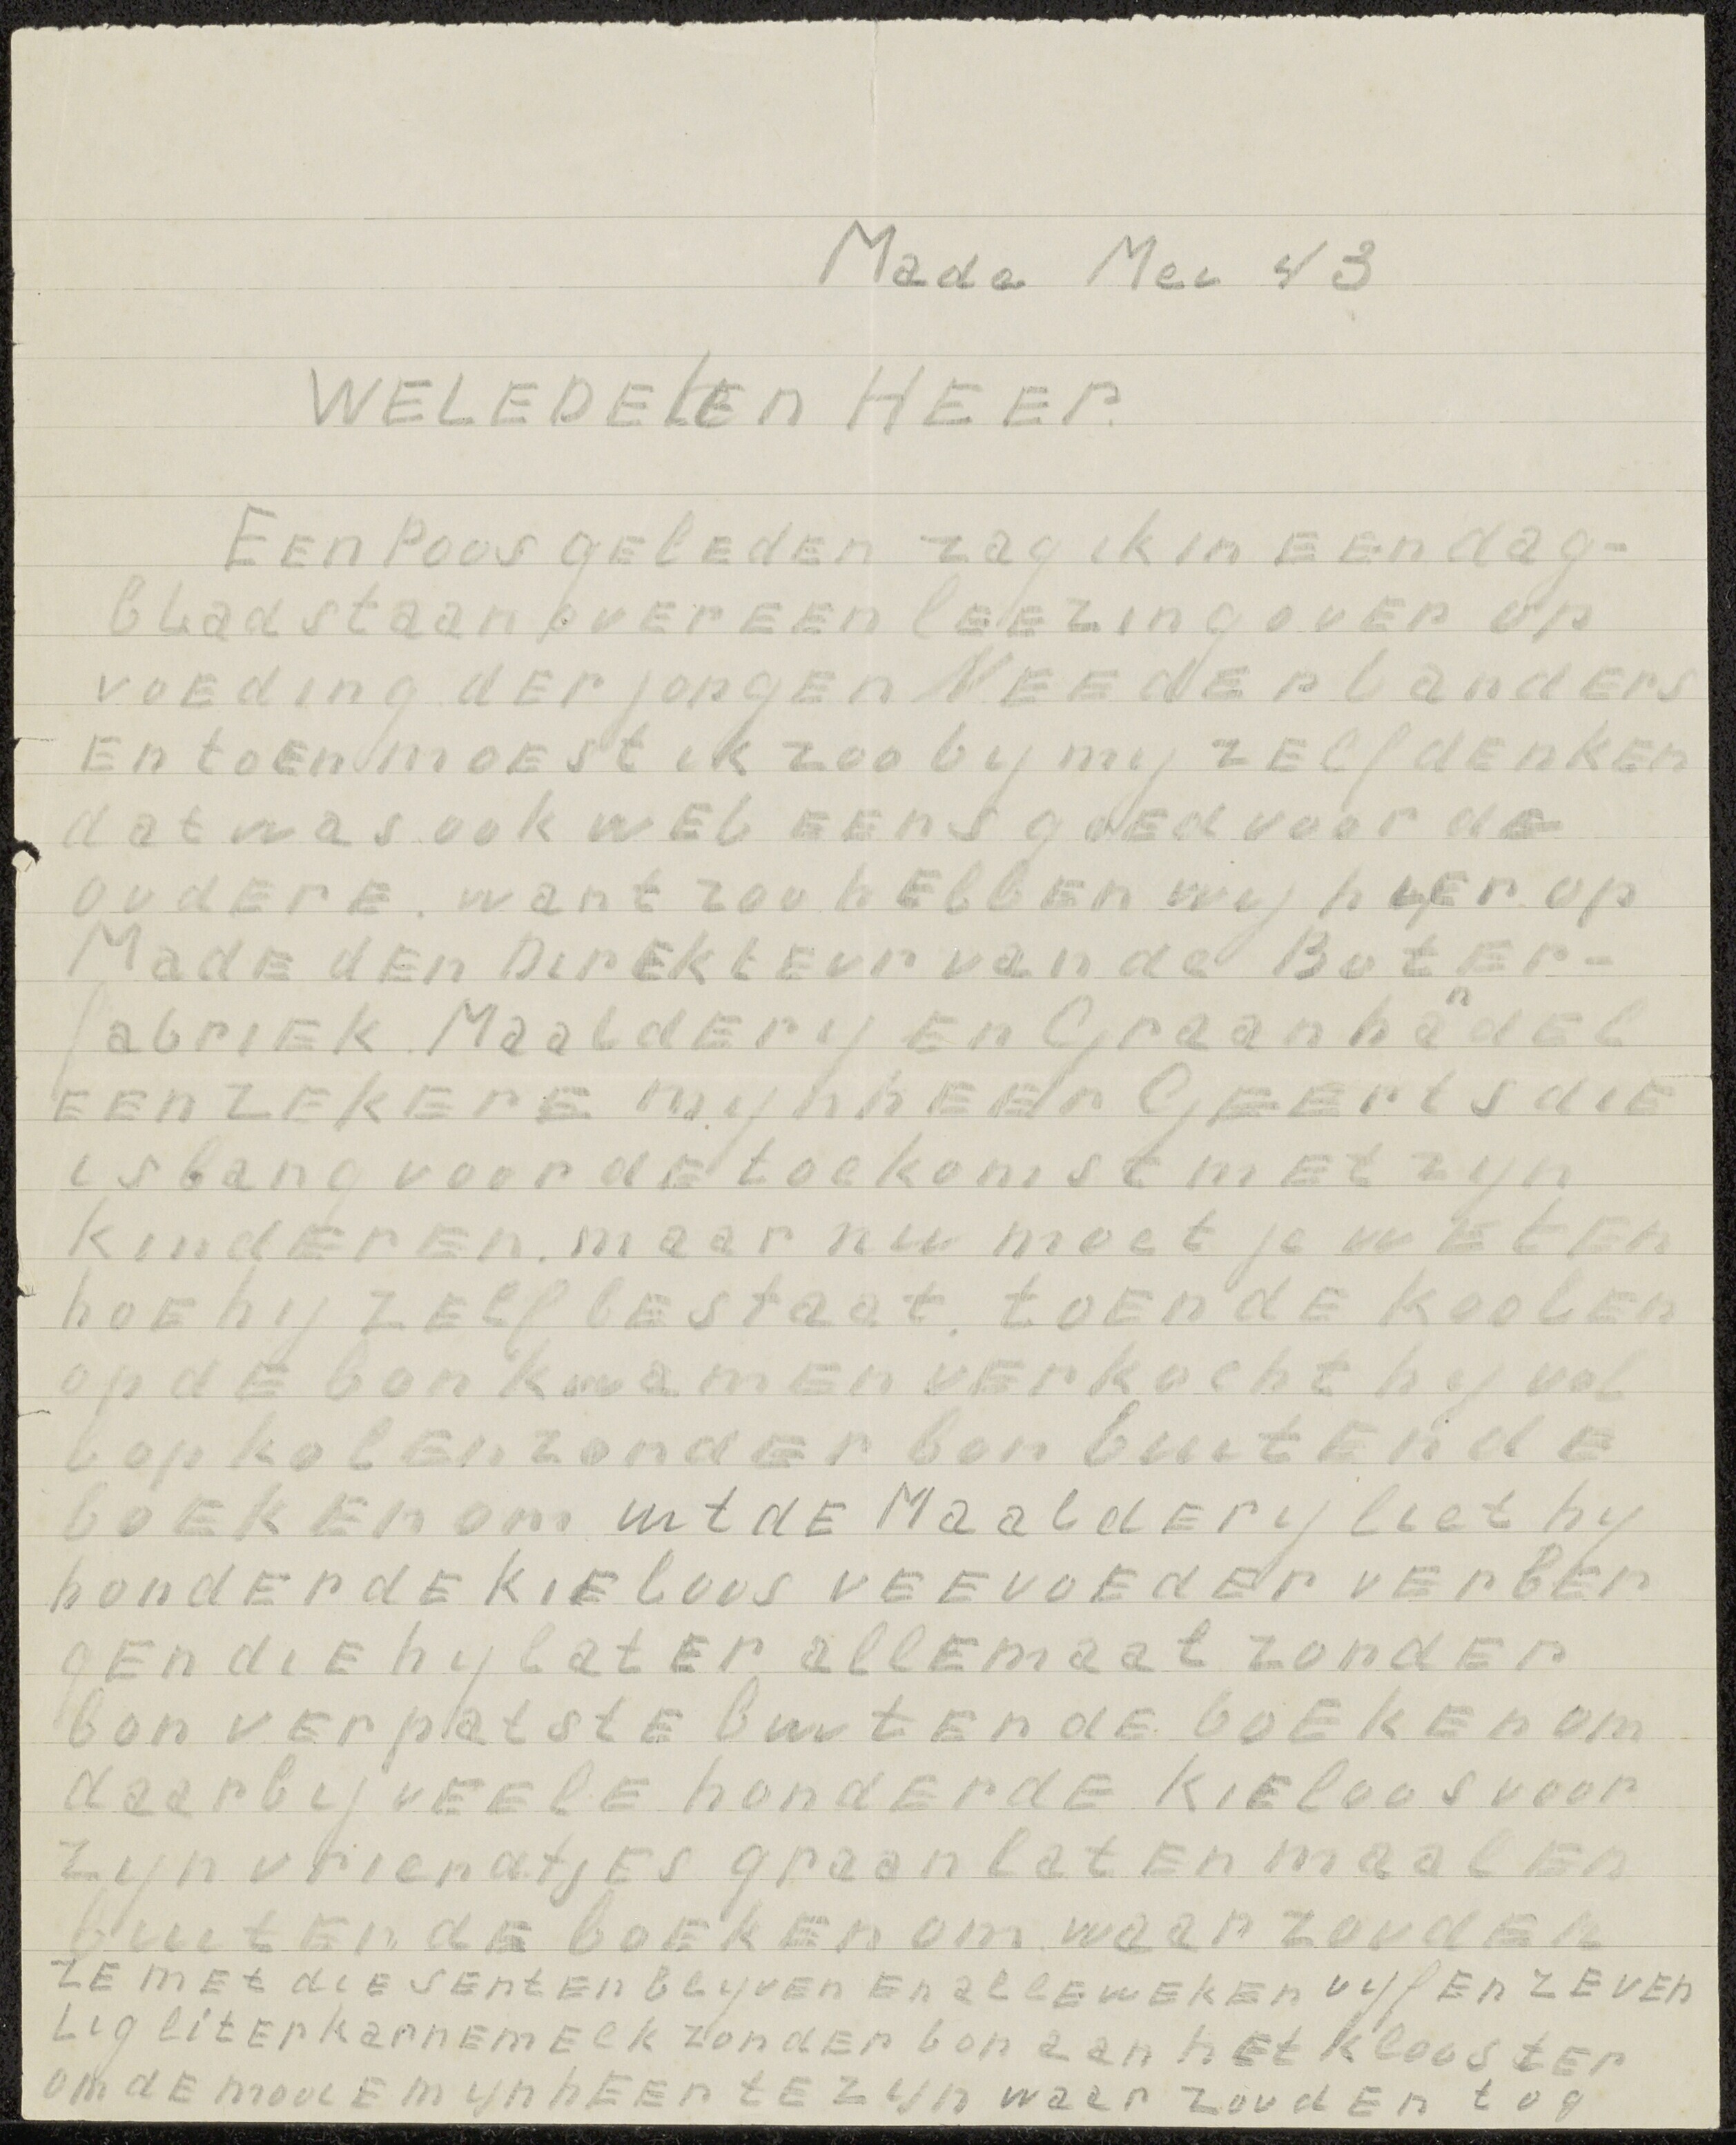 Made Mei 43
WELEDELEn HEEr.
Een Poos geleden zag ik in een dag-
blad staan over een leezing over op
voeding der jongen Neederlanders
en toen moest ik zoo by my zelf denken
dat was ook wel eens goed voor de
oudere. want zoo hebben wy hier op
Made den Direkteur van de Boter-
fabriek Maaldery en Graanhandel
een zekere mynheer Geerts die
is bang voor de toekomst met zyn
kinderen. maar nu moet je weten
hoe hy zelf bestaat. toen de koolen
op de bon kwamen verkocht hy vol
op kolen zonder bon buiten de
boeken om uit de Maaldery liet hy
honderde kieloos veevoeder verber
gen die hy later allemaal zonder
bon verpatste buiten de boeken om
daarby veele honderde kieloos voor
zyn vriendtjes graan laten maalen
buiten de boeken om waar zouden
ze met die senten blyven en alle weken vyf en zeven
tig liter karnemelk zonder bon aan het klooster
om de mooie mynheer te zyn waar zouden tog